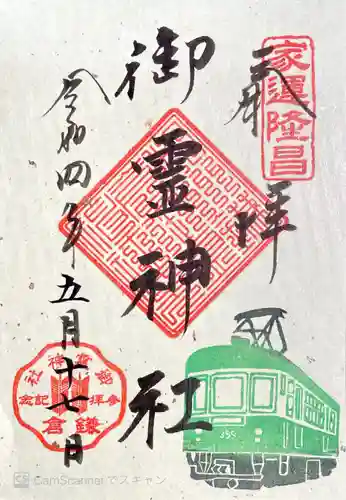 家運隆昌
奉拝
御霊神社
令和四年五月十七日
御霊神社
参拝記念
鎌倉
355
CS CamScannerでスキャン